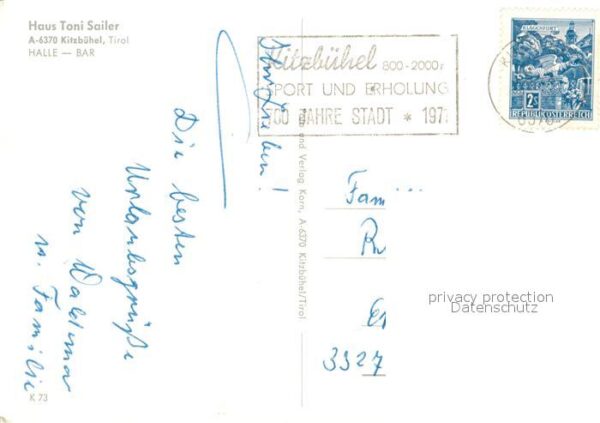 Haus Toni Sailer
A-6370 Kitzbühel, Tirol
HALLE — BAR
Kitzbühel 800-2000m
SPORT UND ERHOLUNG
700 JAHRE STADT * 197
KLAGENFURT
2S
REPUBLIK ÖSTERREICH
Ihr Lieben!
Die besten
Urlaubsgrüße
von Waldemar
u. Familie
K 73
und Verlag Korn, A-6370 Kitzbühel/Tirol
Fam...
3327
privacy protection
Datenschutz